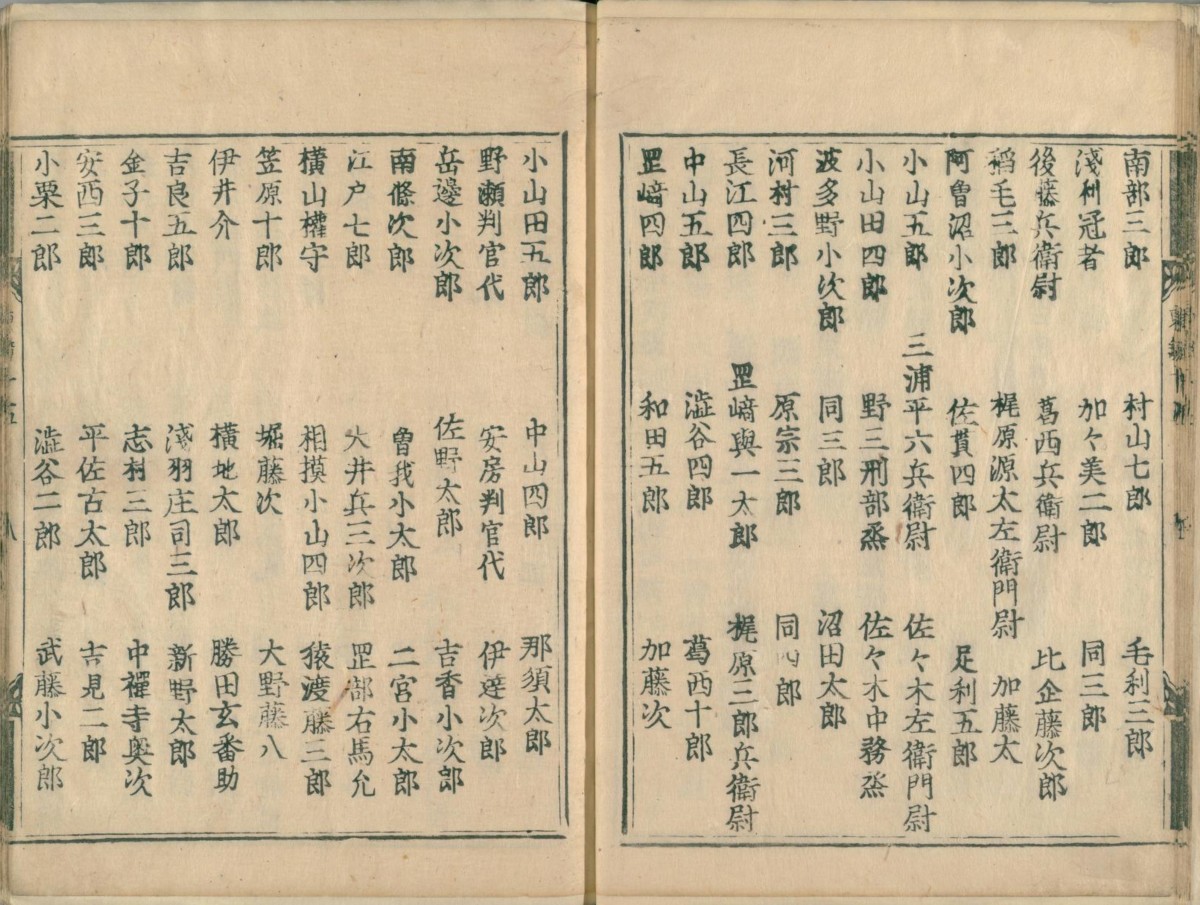 南部三郎 村山七郎 毛利三郎
淺利冠者 加々美二郎 同三郎
後藤兵衛尉 葛西兵衛尉 比企藤次郎
稻毛三郎 梶原源太左衛門尉 加藤太
阿曽沼小次郎 佐貫四郎 足利五郎
小山五郎 三浦平六兵衛尉 佐々木左衛門尉
小山田四郎 野三刑部烝 佐々木中務烝
波多野小次郎 同三郎 沼田太郎
河村三郎 原宗三郎 同四郎
長江四郎 罡﨑與一太郎 梶原三郎兵衛尉
中山五郎 澁谷四郎 葛西十郎
罡﨑四郎 和田五郎 加藤次
小山田五郎 中山四郎 那須太郎
野瀬判官代 安房判官代 伊達次郎
岳邊小次郎 佐野太郎 吉香小次郎
南條次郎 曽我小太郎 二宮小太郎
江戸七郎 大井兵三次郎 罡部右馬允
橫山權守 相摸小山四郎 猿渡藤三郎
笠原十郎 堀藤次 大野藤八
伊井介 橫地太郎 勝田玄番助
吉良五郎 淺羽庄司三郎 新野太郎
金子十郎 志村三郎 中禪寺奥次
安西三郎 平佐古太郎 吉見二郎
小栗二郎 澁谷二郎 武藤小次郎